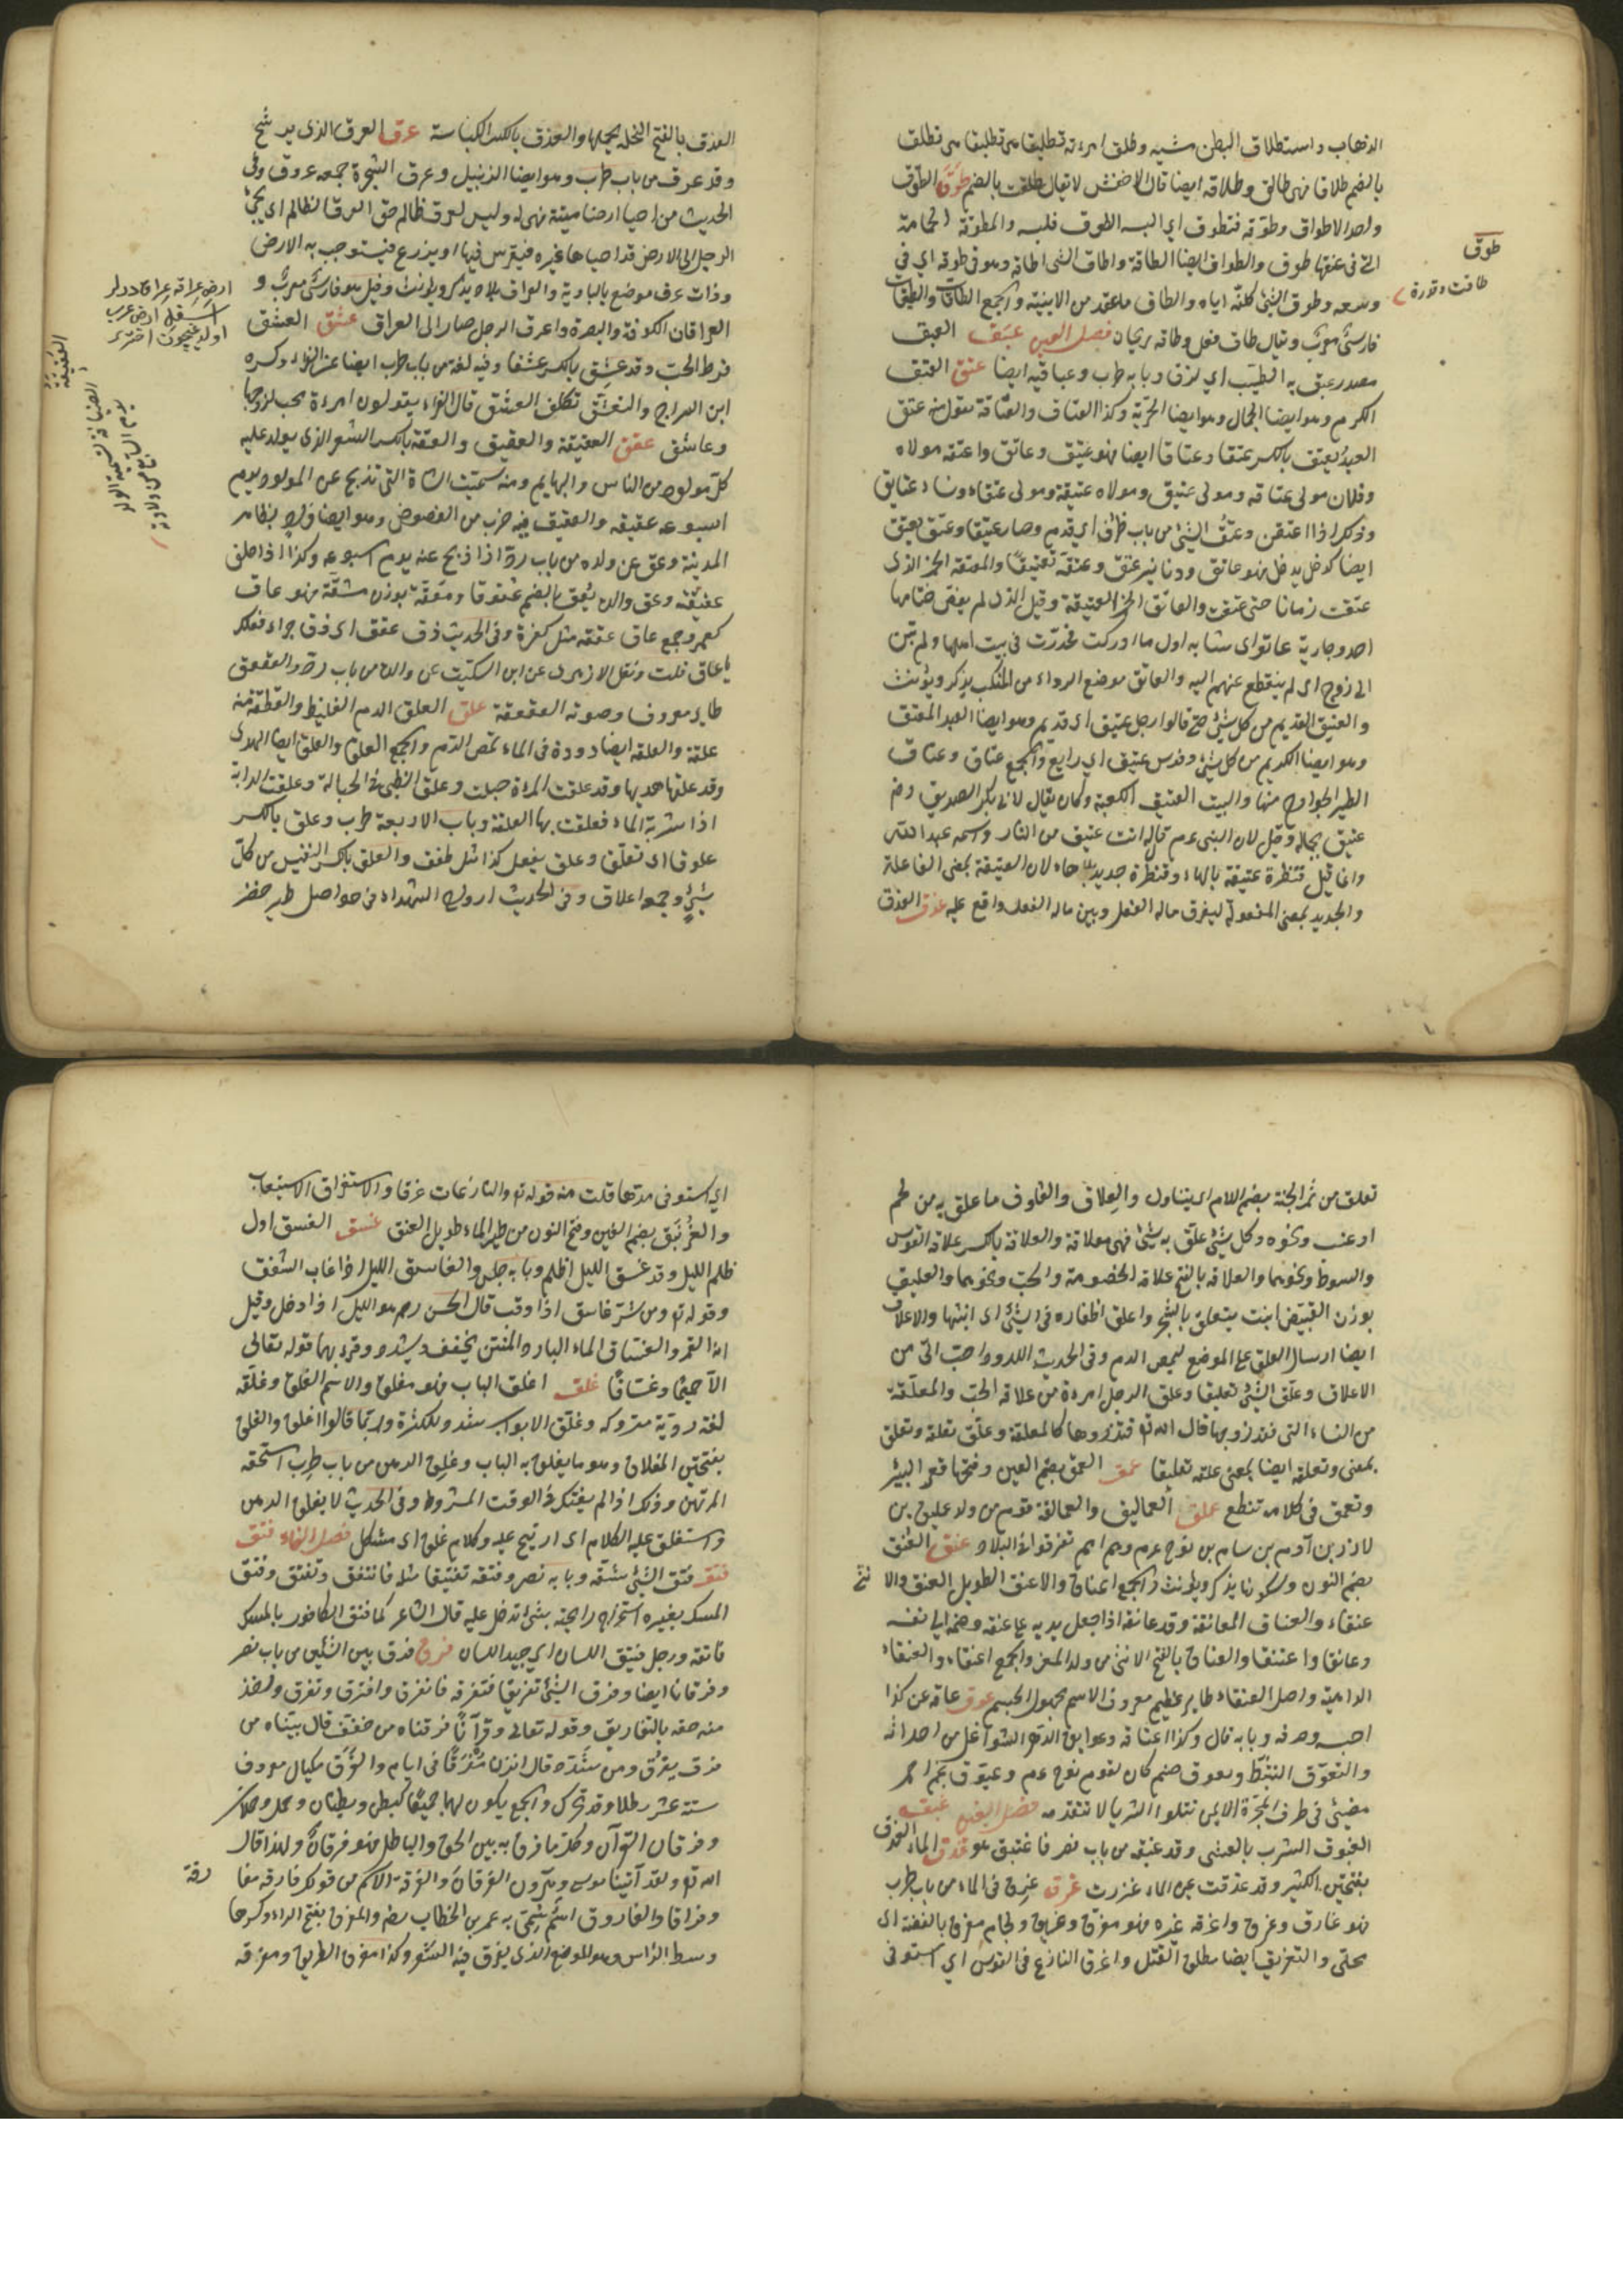 الذهاب واستطلاق البطن مشيه وطلق امرءته تطليقا من تطليقا من تطلق
بالضم طلاقا فهى طالق وطالقة ايضا قال الاخفش لا يقال طلقت بالضم طوق الطوق
واحد الاطواق وطوقه فتطوق اى البسه الطوق فلبسه والمطوقة الحمامة
التى فى عنقها طوق والطواق ايضا الطاقة واطاق الشئ اطاقة وهو فى طوقه اى فى
وسعه وطوق الشئ كلفه اياه والطاق ما عقد من الابنية والجمع الطاقات والطيقان
فارسى معرب ويقال طاق نعل وطاقة ريحان فصل العين عبق العبق
مصدر عبق به الطيب اى لزق وبابه طرب وعباقية ايضا عتق العتق
الكرم وهو ايضا الجمال وهو ايضا الحرية وكذا العتاق والعتاقة تقول منه عتق
العبد يعتق بالكسر عتقا وعتاقا ايضا فهو عتيق وعاتق واعتقه مولاه
وفلان مولى عتاقة ومولى عتيق ومولاة عتيقة وموالى عتقاء ونساء عتايق
وذلك اذا اعتقن وعتق الشئ من باب ظرف اى قدم وصار عتيقا وعتق يعتق
ايضا كدخل يدخل فهو عاتق ودنانير عتق وعتقه تعتيقا والمعتقة الخمر الذى
عتقت زمانا حتى عتقت والعاتق الخمر العتيقة وقيل الذى لم يفض ختامها
احد وجارية عاتق اى شابة اول ما ادركت فخدرت فى بيت اهلها ولم تبن
الى زوج اى لم ينقطع عنهم اليه والعاتق موضع الرداء من المنكب يذكر ويؤنث
والعتيق القديم من كل شئ حتى قالوا رجل عتيق اى قديم وهو ايضا العبد المعتق
وهو ايضا الكريم من كل شئ وفرس عتيق اى رايع والجمع عتاق وعتاق
الطير الجوارح منها والبيت العتيق الكعبة وكان يقال لابى بكر الصديق رضه
عتيق لجماله وقيل لان النبى عم قال له انت عتيق من النار واسمه عبد الله
وانما قيل قنطرة عتيقة بالهاء وقنطرة جديد بلا هاء لان العتيقة بمعنى الفاعلة
والجديد بمعنى المفعولة ليفرق ما له الفعل وبين ما له الفعل واقع عليه عذق العذق
طوق
طاقت وقدرة
العذق بالفتح النخلة بحملها والعذق بالكسر الكباسة عرق العرق الذى يرشح
وقد عرق من باب طرب وهو ايضا الزنبيل وعرق الشجرة جمعه عروق وفى
الحديث من احيا ارضا ميتة فهى له وليس لعرق ظالم حق العرق الظالم ان يجئ
الرجل الى الارض قد احياها غيره فيغرس فيها او يزرع فيستوجب به الارض
وذات عرق موضع بالبادية والعراق بلاد يذكر ويؤنث وقيل هو فارسى معرب و
العراقان الكوفة والبصرة واعرق الرجل صار الى العراق عشق العشق
فرط الحب وقد عشق بالكسر عشقا وفيه لغة من باب طرب ايضا عن الفراء وكسره
ابن السراج والتعشق تكلف العشق قال الفراء يقولون امرءة محب لزوجها
وعاشق عقق العقيقة والعقيق والعقة بالكسر الشعر الذى يولد عليه
كل مولود من الناس والبهايم ومنه سميت الشاة التى تذبح عن المولود يوم
اسبوعه عقيقة والعقيق فيه ضرب من الفصوص وهو ايضا واد بظاهر
المدينة وعق عن ولده من باب رد اذا ذبح عنه يوم اسبوعه وكذا اذا حلق
عقيقته وعق والده يعق بالضم عقوقا ومعقة بوزن مشقة فهو عاق
كعمر وجمع عاق عققة مثل كفرة وفى الحديث ذق عقق اى ذق جزاء فعلك
يا عاق قلت ونقل الازهرى عن ابن السكيت عن والده من باب رد والعقعق
طاير معروف وصوته العقعقة علق العلق الدم الغليظ والقطعة منه
علقة والعلقة ايضا دودة فى الماء تمص الدم والجمع العلق والعلق ايضا الهوى
وقد علقها هويها وقد علقت المراة حبلت وعلق الظبى فى الحبالة وعلقت الدابة
اذا شربت الماء فعلقت بها العلقة وباب الاربعة طرب وعلق بالكسر
علوقا اى تعلق وعلق يفعل كذا مثل طفق والعلق بالكسر النفيس من كل
شئ وجمعه اعلاق وفى الحديث ارواح الشهداء فى حواصل طير خضر
ارض عراقه عراق ديدلر
اسفل ارض عرب
اولديغيچون
العقيقة
ايضا
يوم السابع من ولادته
تعلق من ثمر الجنة بضم اللام اى يتناول والعلاق والعلوق ما علق به من لحم
او عنب ونحوه وكل شئ علق به شئ فهى معلاقة والعلاقة بالكسر علاقة القوس
والسوط ونحوهما والعلاقة بالفتح علاقة الخصومة والحب ونحوهما والعليق
بوزن القبيط نبت يتعلق بالشجر واعلق اظفاره فى الشئ اى انشبها والاعلاق
ايضا ارسال العلق على الموضع ليمص الدم وفى الحديث اللدود احب الى من
الاعلاق وعلق الشئ تعليقا وعلق الرجل امرءة من علاقة الحب والمعلقة
من النساء التى فقد زوجها قال الله تع فتذروها كالمعلقة وعلق تعلقه وتعلق
بمعنى وتعلقه ايضا بمعنى علقه تعليقا عمق العمق بضم العين وفتحها قعر البئر
وتعمق فى كلامه تنطع عملق العماليق والعمالقة قوم من ولد عمليق بن
لاوذ بن آدم بن سام بن نوح عم وهم امم تفرقوا فى البلاد عنق العنق
بضم النون وسكونها يذكر ويؤنث والجمع اعناق والاعنق الطويل العنق والانثى
عنقاء والعناق المعانقة وقد عانقه اذا جعل يديه على عنقه وضمه الى نفسه
وعانقا واعتنقا والعناق بالفتح الانثى من ولد المعز والجمع اعنق والعنقاء
الداهية واصل العنقاء طاير عظيم معروف الاسم مجهول الجسم عوق عاقه عن كذا
احبسه وصرفه وبابه قال وكذا اعتاقه وعوايق الدهر الشواغل من احداثه
والتعوق التثبط ويعوق صنم كان لقوم نوح عم وعيوق نجم احمر
مضيئ فى طرف المجرة الايمن تتلو الثريا لا تتقدمه فصل الغين غبق
الغبوق الشرب بالعشى وقد غبقه من باب نصر فاغتبق هو غدق الماء الغدق
بفتحتين الكثير وقد غدقت عين الماء غزرت غرق غرق فى الماء من باب طرب
فهو غارق وغرق واغرقه غيره فهو مغرق وغريق ولجام مغرق بالفضة اى
محلى والتغريق ايضا مطلق القتل واغرق النازع فى القوس اى استوفى
اى استوفى مدها قلت منه قوله تع والنازعات غرقا والاستغراق الاستيعاب
والغرنيق بضم الغين وفتح النون من طير الماء طويل العنق غسق الغسق اول
ظلم الليل وقد غسق الليل اظلم وبابه جلس والغاسق الليل اذا غاب الشفق
وقوله تع ومن شر غاسق اذا وقب قال الحسن رحم هو الليل اذا دخل وقيل
انه القمر والغساق الماء البارد المنتن يخفف ويشدد وقرء بهما قوله تعالى
الا حميما وغساقا غلق اغلق الباب فهو مغلق والاسم الغلق وغلقه
لغة ردية متروكة وغلق الابواب شدد للكثرة وربما قالوا اغلق والغلق
بفتحتين المغلاق وهو ما يغلق به الباب وغلق الرهن من باب طرب استحقه
المرتهن وذلك اذا لم يفتكه فى الوقت المشروط وفى الحديث لا يغلق الرهن
واستغلق عليه الكلام اى ارتج عليه وكلام غلق اى مشكل فصل الفاء فتق
فتق فتق الشئ شقه وبابه نصر وفتقه تفتيقا مثله فانفتق وتفتق وفتق
المسك بغيره استخراج رايحته بشئ تدخل عليه قال الشاعر كما فتق الكافور بالمسك
فاتقه ورجل فتيق اللسان اى جيد اللسان فرق فرق بين الشيئين من باب نصر
وفرقانا ايضا وفرق الشئ تفريقا فتفرقه فانفرق وافترق وتفرق واخذ
منه حقه بالتفاريق وقوله تعالى وقرآنا فرقناه من خففه قال بيناه من
فرق يفرق ومن شدده قال انزلناه مفرقا فى ايام والفرق مكيال معروف
ستة عشر رطلا وقد تحرك والجمع يكون لهما جميعا كبطن وبطنان وحمل وحملان
وفرقان القرآن وكل ما فرق به بين الحق والباطل فهو فرقان ولهذا قال
الله تع ولقد آتينا موسى وهرون الفرقان والفرقة الاسم من قولك فارقه مفارقة
وفراقا والفاروق اسم سمى به عمر بن الخطاب رضه والمفرق بفتح الراء وكسرها
وسط الراس وهو الموضع الذى يفرق فيه الشعر وكذا مفرق الطريق ومفرقه